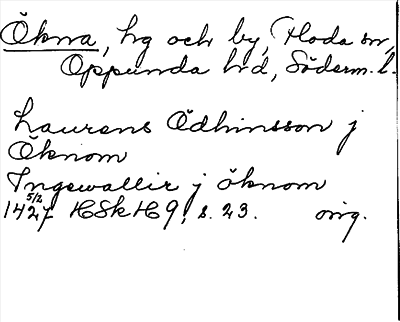 Ökna, hg och by, Floda sn,
Oppunda hd, Söderm. l.
Laurens Ödhinsson j
Öknom
Ingewallir j öknom
5/2
1427 HSkH 9, s. 23. orig.